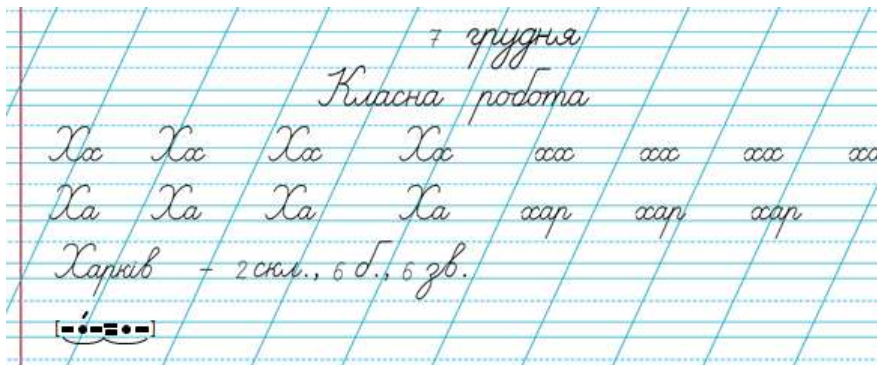 7 грудня
Класна робота
Хх Хх Хх Хх хх хх хх хх
Ха Ха Ха Ха хар хар хар
Харків - 2 скл., 6 б., 6 зв.
[–•́–=•–]